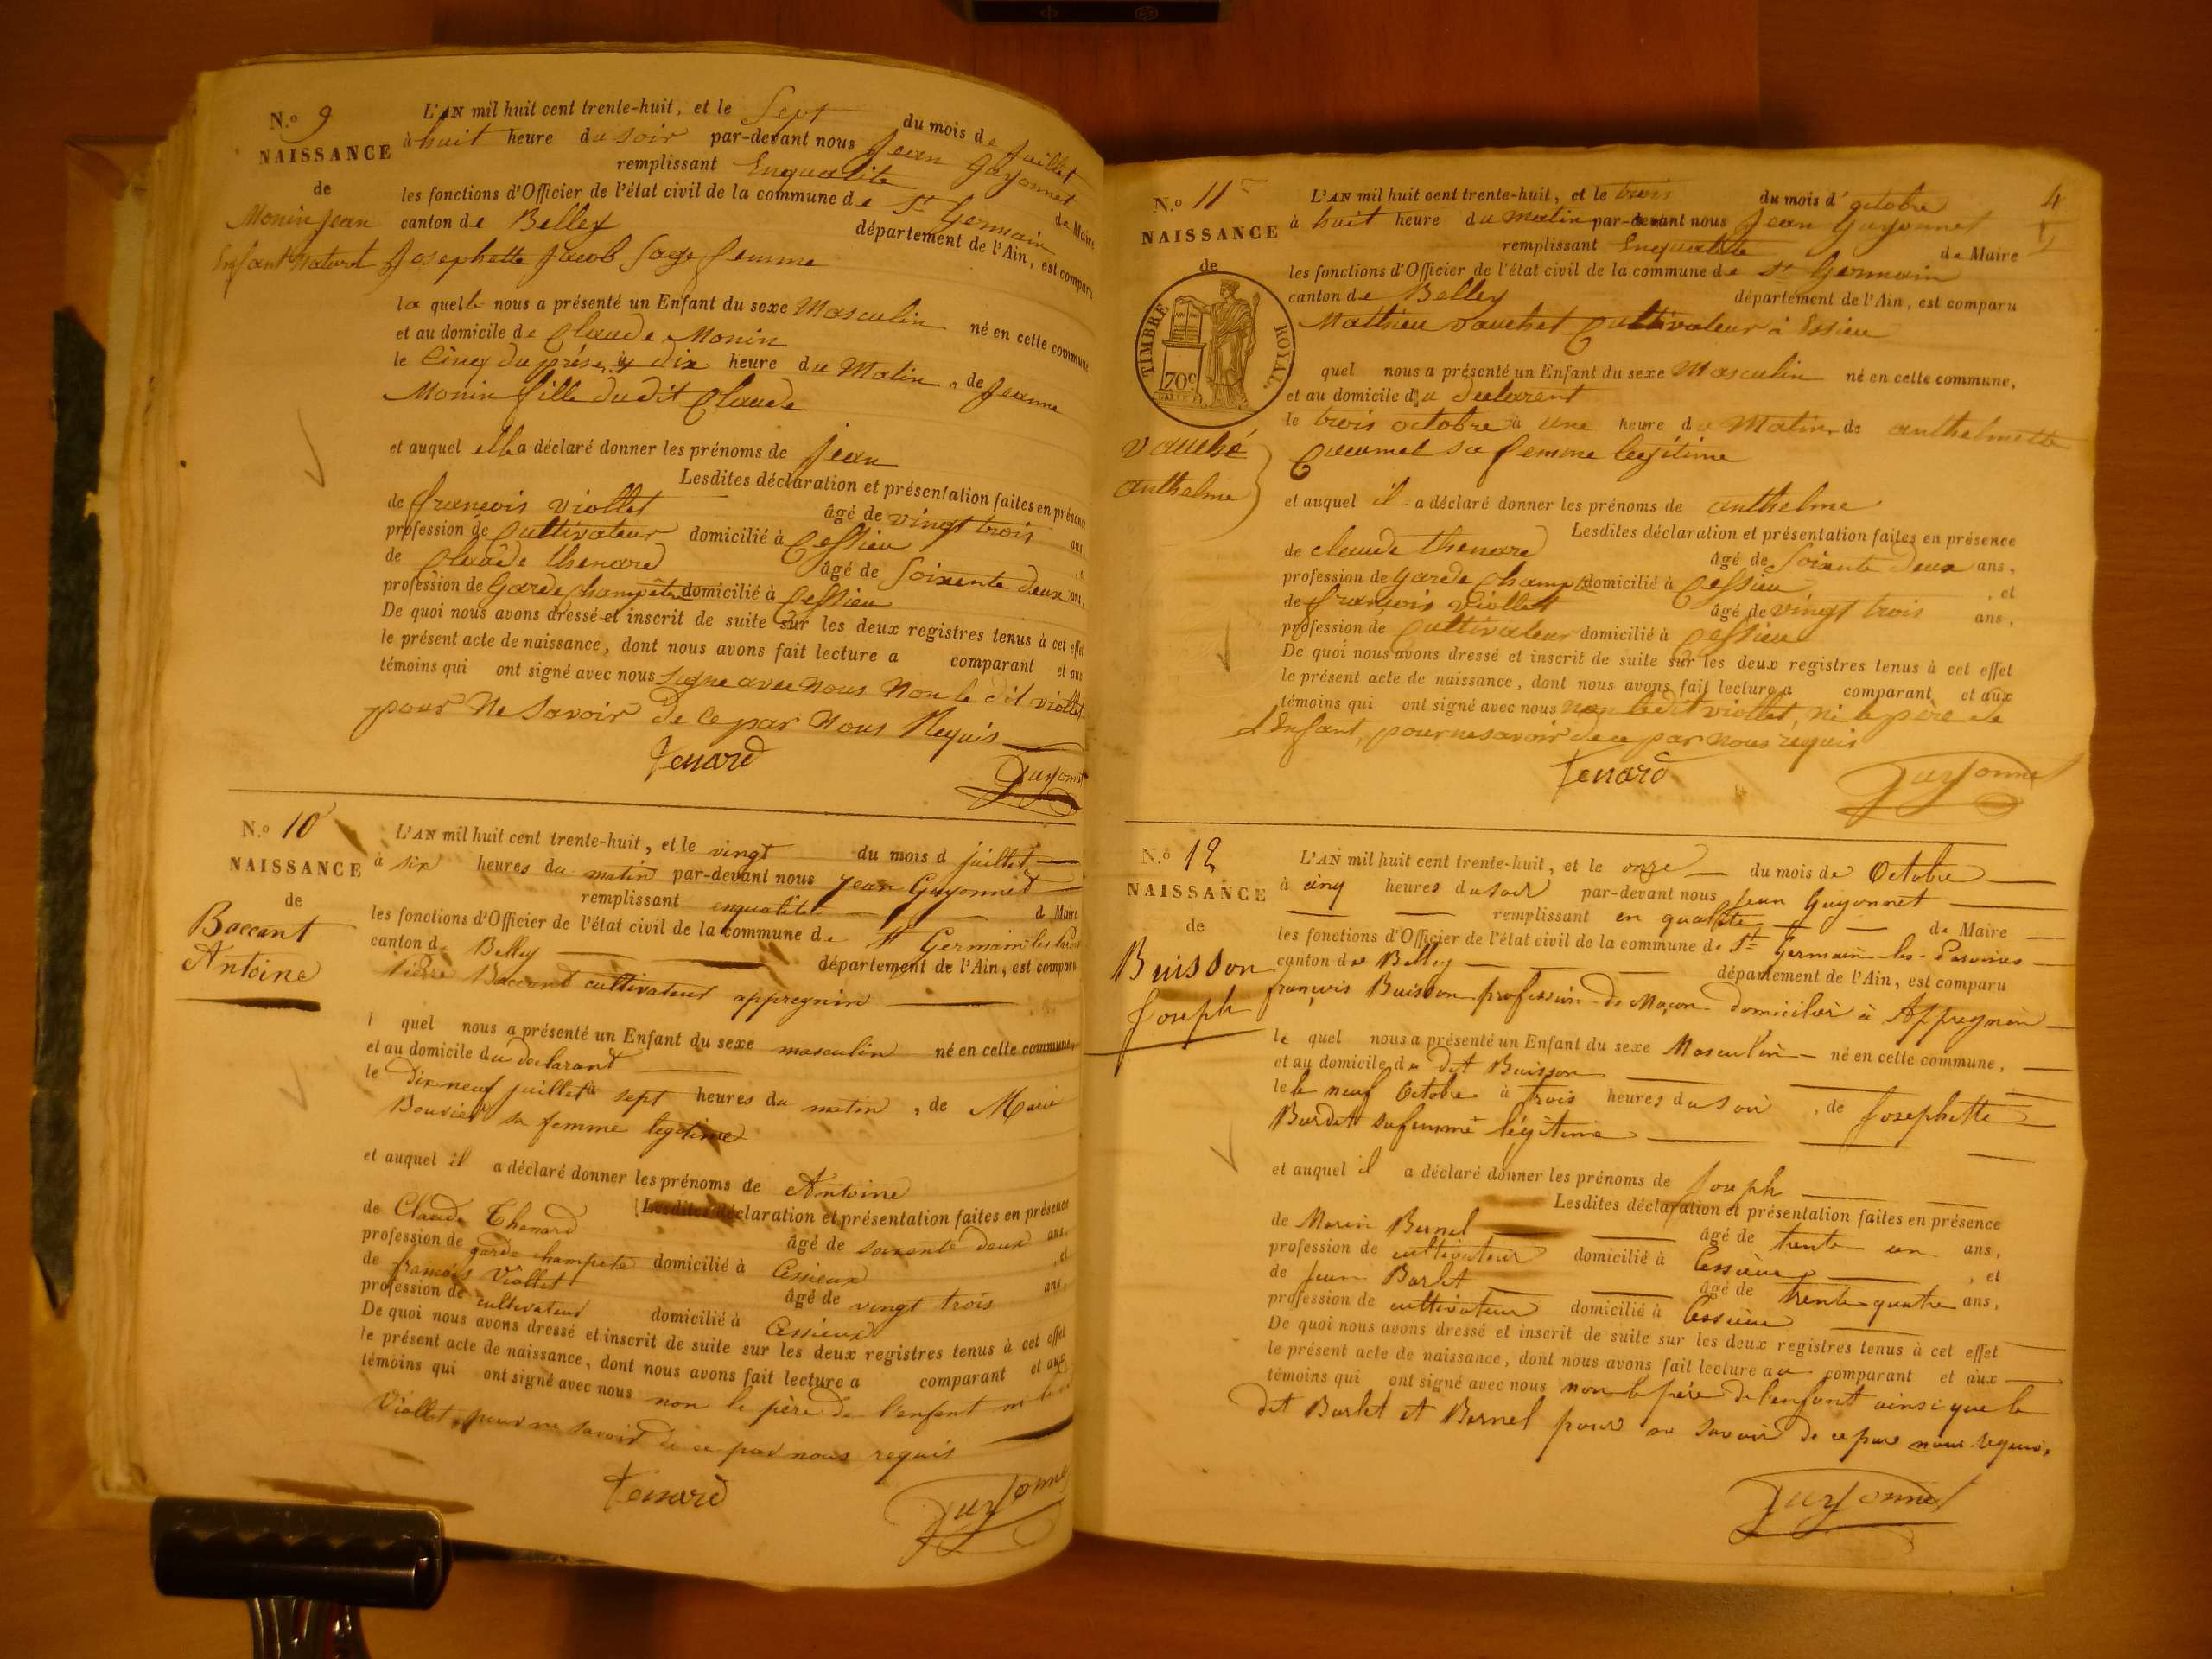 N.º 9
NAISSANCE
de
Monin Jean
Enfant Naturel
L'AN mil huit cent trente-huit, et le Sept du mois de Juillet
à huit heure du soir par-devant nous Jean Guyonnet
remplissant Enqualité de Maire
les fonctions d'Officier de l'état civil de la commune de St Germain
canton de Belley département de l'Ain, est comparu
Josephette Jacob Sage femme
la quelle nous a présenté un Enfant du sexe Masculin né en cette commune,
et au domicile de Claude Monin
le Cinq du présent à dix heure du Matin, de Jeanne
Monin fille du dit Claude
et auquel elle a déclaré donner les prénoms de Jean
Lesdites déclaration et présentation faites en présence
de françois viollet âgé de vingt trois ans,
profession de Cultivateur domicilié à Cessieu, et
de Claude thenard âgé de Soixente deux ans,
profession de Garde Champêtre domicilié à Cessieu
De quoi nous avons dressé et inscrit de suite sur les deux registres tenus à cet effet
le présent acte de naissance, dont nous avons fait lecture a comparant et aux
témoins qui ont signé avec nous Signe avec nous Non le dit viollet
pour Ne Savoir de Ce par Nous Requis
Tenard
Guyonnet
N.º 10
NAISSANCE
de
Baccant
Antoine
L'AN mil huit cent trente-huit, et le vingt du mois d juillet
à six heures du matin par-devant nous Jean Guyonnet
remplissant enqualité d Maire
les fonctions d'Officier de l'état civil de la commune de St Germain les
canton d Belley département de l'Ain, est comparu
Baccand cultivateur appregnin
l quel nous a présenté un Enfant du sexe masculin né en cette commune,
et au domicile du declarant
le dix neuf juillet à sept heures du matin, de Marie
Bouvier sa femme legitime
et auquel il a déclaré donner les prénoms de Antoine
Lesdites déclaration et présentation faites en présence
de Claude Thenard âgé de soixente deux ans,
profession de garde champete domicilié à Cessieux, et
de francois Viollet âgé de vingt trois ans,
profession de cultivateur domicilié à Cessieux
De quoi nous avons dressé et inscrit de suite sur les deux registres tenus à cet effet
le présent acte de naissance, dont nous avons fait lecture a comparant et aux
témoins qui ont signé avec nous non le père de l'enfant ni le
Viollet pour ne savoir de ce par nous requis
Tenard
Guyonnet
4
N.º 11
NAISSANCE
de
TIMBRE ROYAL.
70c
vauché
anthelme
L'AN mil huit cent trente-huit, et le trois du mois d'octobre
à huit heure du Matin par-devant nous Jean Guyonnet
remplissant Enqualité de Maire
les fonctions d'Officier de l'état civil de la commune de St Germain
canton de Belley département de l'Ain, est comparu
Mathieu vauchet Cultivateur à Essieu
quel nous a présenté un Enfant du sexe Masculin né en cette commune,
et au domicile du declarent
le trois octobre à une heure du Matin, de anthelmette
sa femme legitime
et auquel il a déclaré donner les prénoms de anthelme
Lesdites déclaration et présentation faites en présence
de claude thenard âgé de Soixente Deux ans,
profession de Garde Champ domicilié à Cessieu, et
de françois viollet âgé de vingt trois ans,
profession de Cultivateur domicilié à Cessieu
De quoi nous avons dressé et inscrit de suite sur les deux registres tenus à cet effet
le présent acte de naissance, dont nous avons fait lecture a comparant et aux
témoins qui ont signé avec nous non ledit viollet, ni le père de
l'Enfant, pour ne savoir de ce par nous requis
Tenard
Guyonnet
N.º 12
NAISSANCE
de
Buisson
Joseph
L'AN mil huit cent trente-huit, et le onze du mois de Octobre
à cinq heures du soir par-devant nous Jean Guyonnet
remplissant en qualité de Maire
les fonctions d'Officier de l'état civil de la commune de St Germain-les-Paroisses
canton de Belley département de l'Ain, est comparu
françois Buisson profession de Maçon domicilié à Appregnin
le quel nous a présenté un Enfant du sexe Masculin né en cette commune,
et au domicile du dit Buisson
le le neuf Octobre à trois heures du soir, de Josephette
Burdet sa femme légitime
et auquel il a déclaré donner les prénoms de Joseph
Lesdites déclaration et présentation faites en présence
de Marin Bernel âgé de trente un ans,
profession de cultivateur domicilié à Cessieux, et
de Jean Barlet âgé de trente-quatre ans,
profession de cultivateur domicilié à Cessieux
De quoi nous avons dressé et inscrit de suite sur les deux registres tenus à cet effet
le présent acte de naissance, dont nous avons fait lecture au comparant et aux
témoins qui ont signé avec nous non le père de l'enfant ainsi que le
dit Barlet et Bernel pour ne savoir de ce par nous requis.
Guyonnet